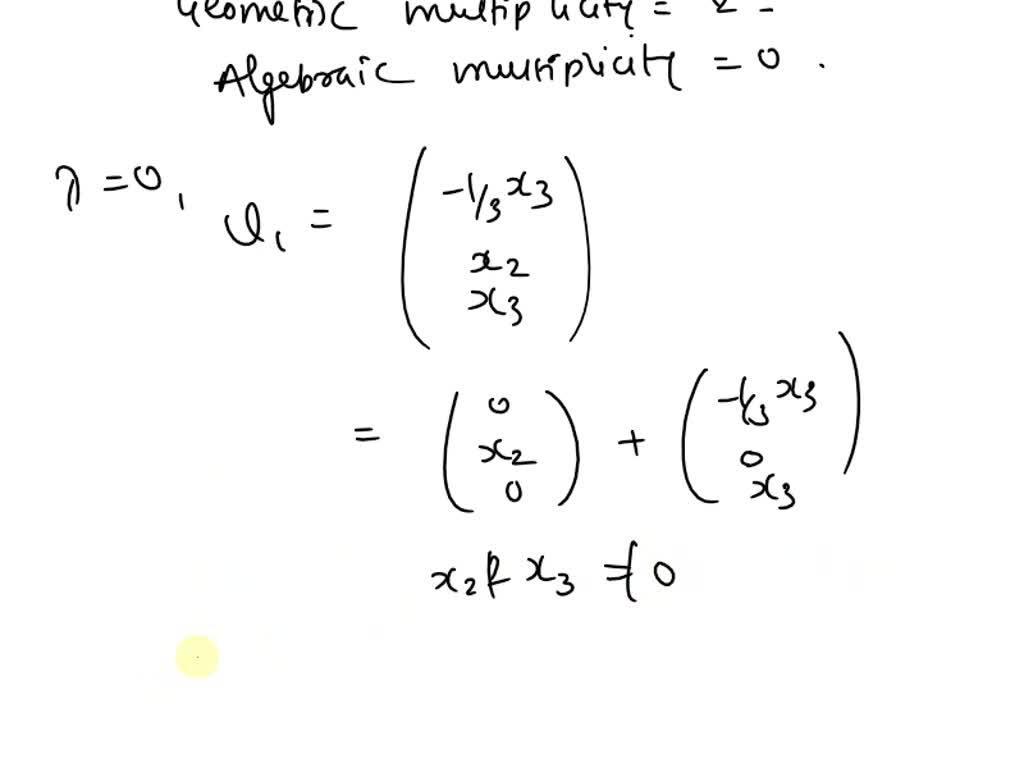 Geometric multiplicity = 2
Algebraic multiplicity = 0 .
λ = 0, v₁ = ( -1/3 x₃
x₂
x₃ )
= ( 0
x₂
0 ) + ( -1/3 x₃
0
x₃ )
x₂ & x₃ ≠ 0